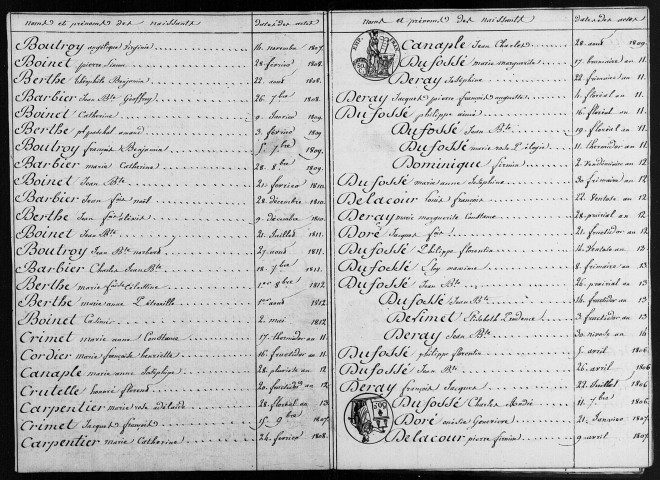 Noms et prénoms des naissants dates des actes
Boutroy angélique virginie 14. novembre 1807
Boinet pierre 28. février 1808.
Berthe théophile Benjamin 22. aout 1808.
Barbier Jean Bte Geoffroy 26. 7bre 1808.
Boinet Catherine 9. Janvier 1809.
Berthe amand 3. février 1809
Boutroy françois Benjamin 5. 7bre 1809.
Barbier marie Catherine 28. 8bre 1809.
Boinet Jean Bte 21. février 1810.
Barbier Jean fois noël 28. décembre 1810.
Berthe Jean fois 9. décembre 1810.
Boinet Jean Bte 21. Juillet 1811.
Boutroy Jean Bte norbert 29. aout 1811.
Barbier Charles Jean Bte 18. 7bre 1811.
Berthe marie Célestine 1er 8bre 1812
Berthe marie anne 1er aout 1812
Boinet Casimir 2. mai 1812
Crimet marie anne Constance 17. thermidor an 11.
Cordier marie françoise henriette 16. fructidor an 11.
Canaple marie anne Joséphine 28. pluviose an 12
Crutelle honoré florent 20. an 12
Carpentier marie rose adélaïde 28. floréal an 13
Crimet Jacques françois 15. 9bre 1807.
Carpentier marie Catherine 24. février 1808.
Noms et prénoms des naissants dates des actes
Canaple Jean Charles 20. aout 1809.
Dufossé marie marguerite 17. brumaire an 11.
Deray Joséphine 22. frimaire an 11.
Deray Jacques pierre françois auguste 4. floréal an 11.
Dufossé philippe aimé 16. floréal an 11.
Dufossé Jean Bte 19. floréal an 11.
Dufossé marie rose 11. thermidor an 11.
Dominique firmin 2. Vendémiaire an 12
Dufossé marie anne Joséphine 30 frimaire an 12
Delacour louis françois 22. Ventose an 12
Deray marie marguerite Constance 28. prairial an 12
Doré Jacques fois 21. fructidor an 12
Dufossé Philippe florentin 14. Ventose an 12
Dufossé Eloy maxime 8. frimaire an 13
Dufossé Jean Bte 26. prairial an 13
Dufossé Jean Bte 14. fructidor an 13
Delimet Elisabeth Prudence 3. fructidor an 13
Deray Jean Bte 30. nivose an 14
Dufossé philippe florentin 5. avril 1806.
Dufossé Jean Bte 26. avril 1806
Deray françois Jacques 22. Juillet 1806
Dufossé Charles 11. 7bre 1806.
Doré Geneviève 21. Janvier 1807.
Delacour pierre firmin 9. avril 1807.